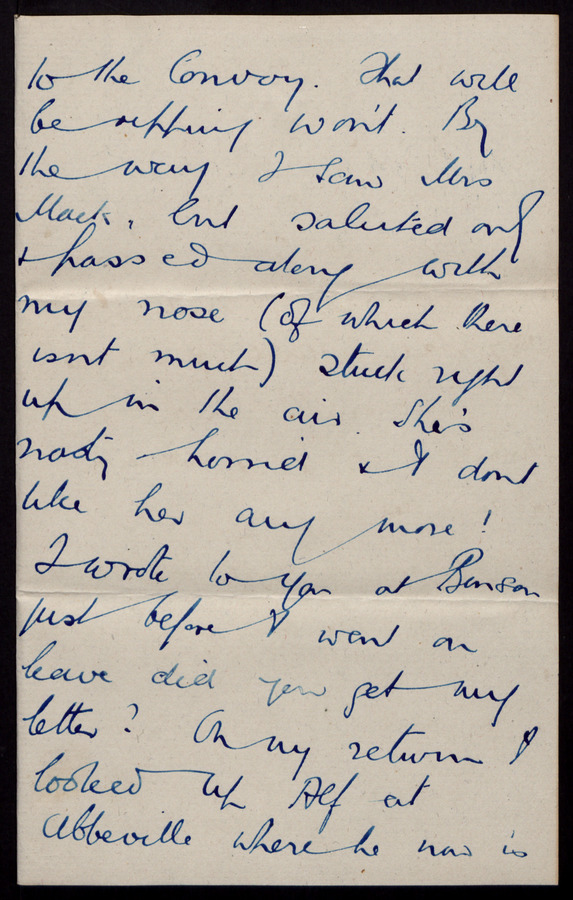 to the Convoy. That will
be ripping won't. By
the way I saw Mrs
Mack, but saluted only
& passed along with
my nose (of which there
isnt much) stuck right
up in the air. She's
nasty horrid & I dont
like her any more!
I wrote to you at Benson
just before I went on
leave did you get my
letter? On my return I
looked up Alf at
Abbeville where he now is